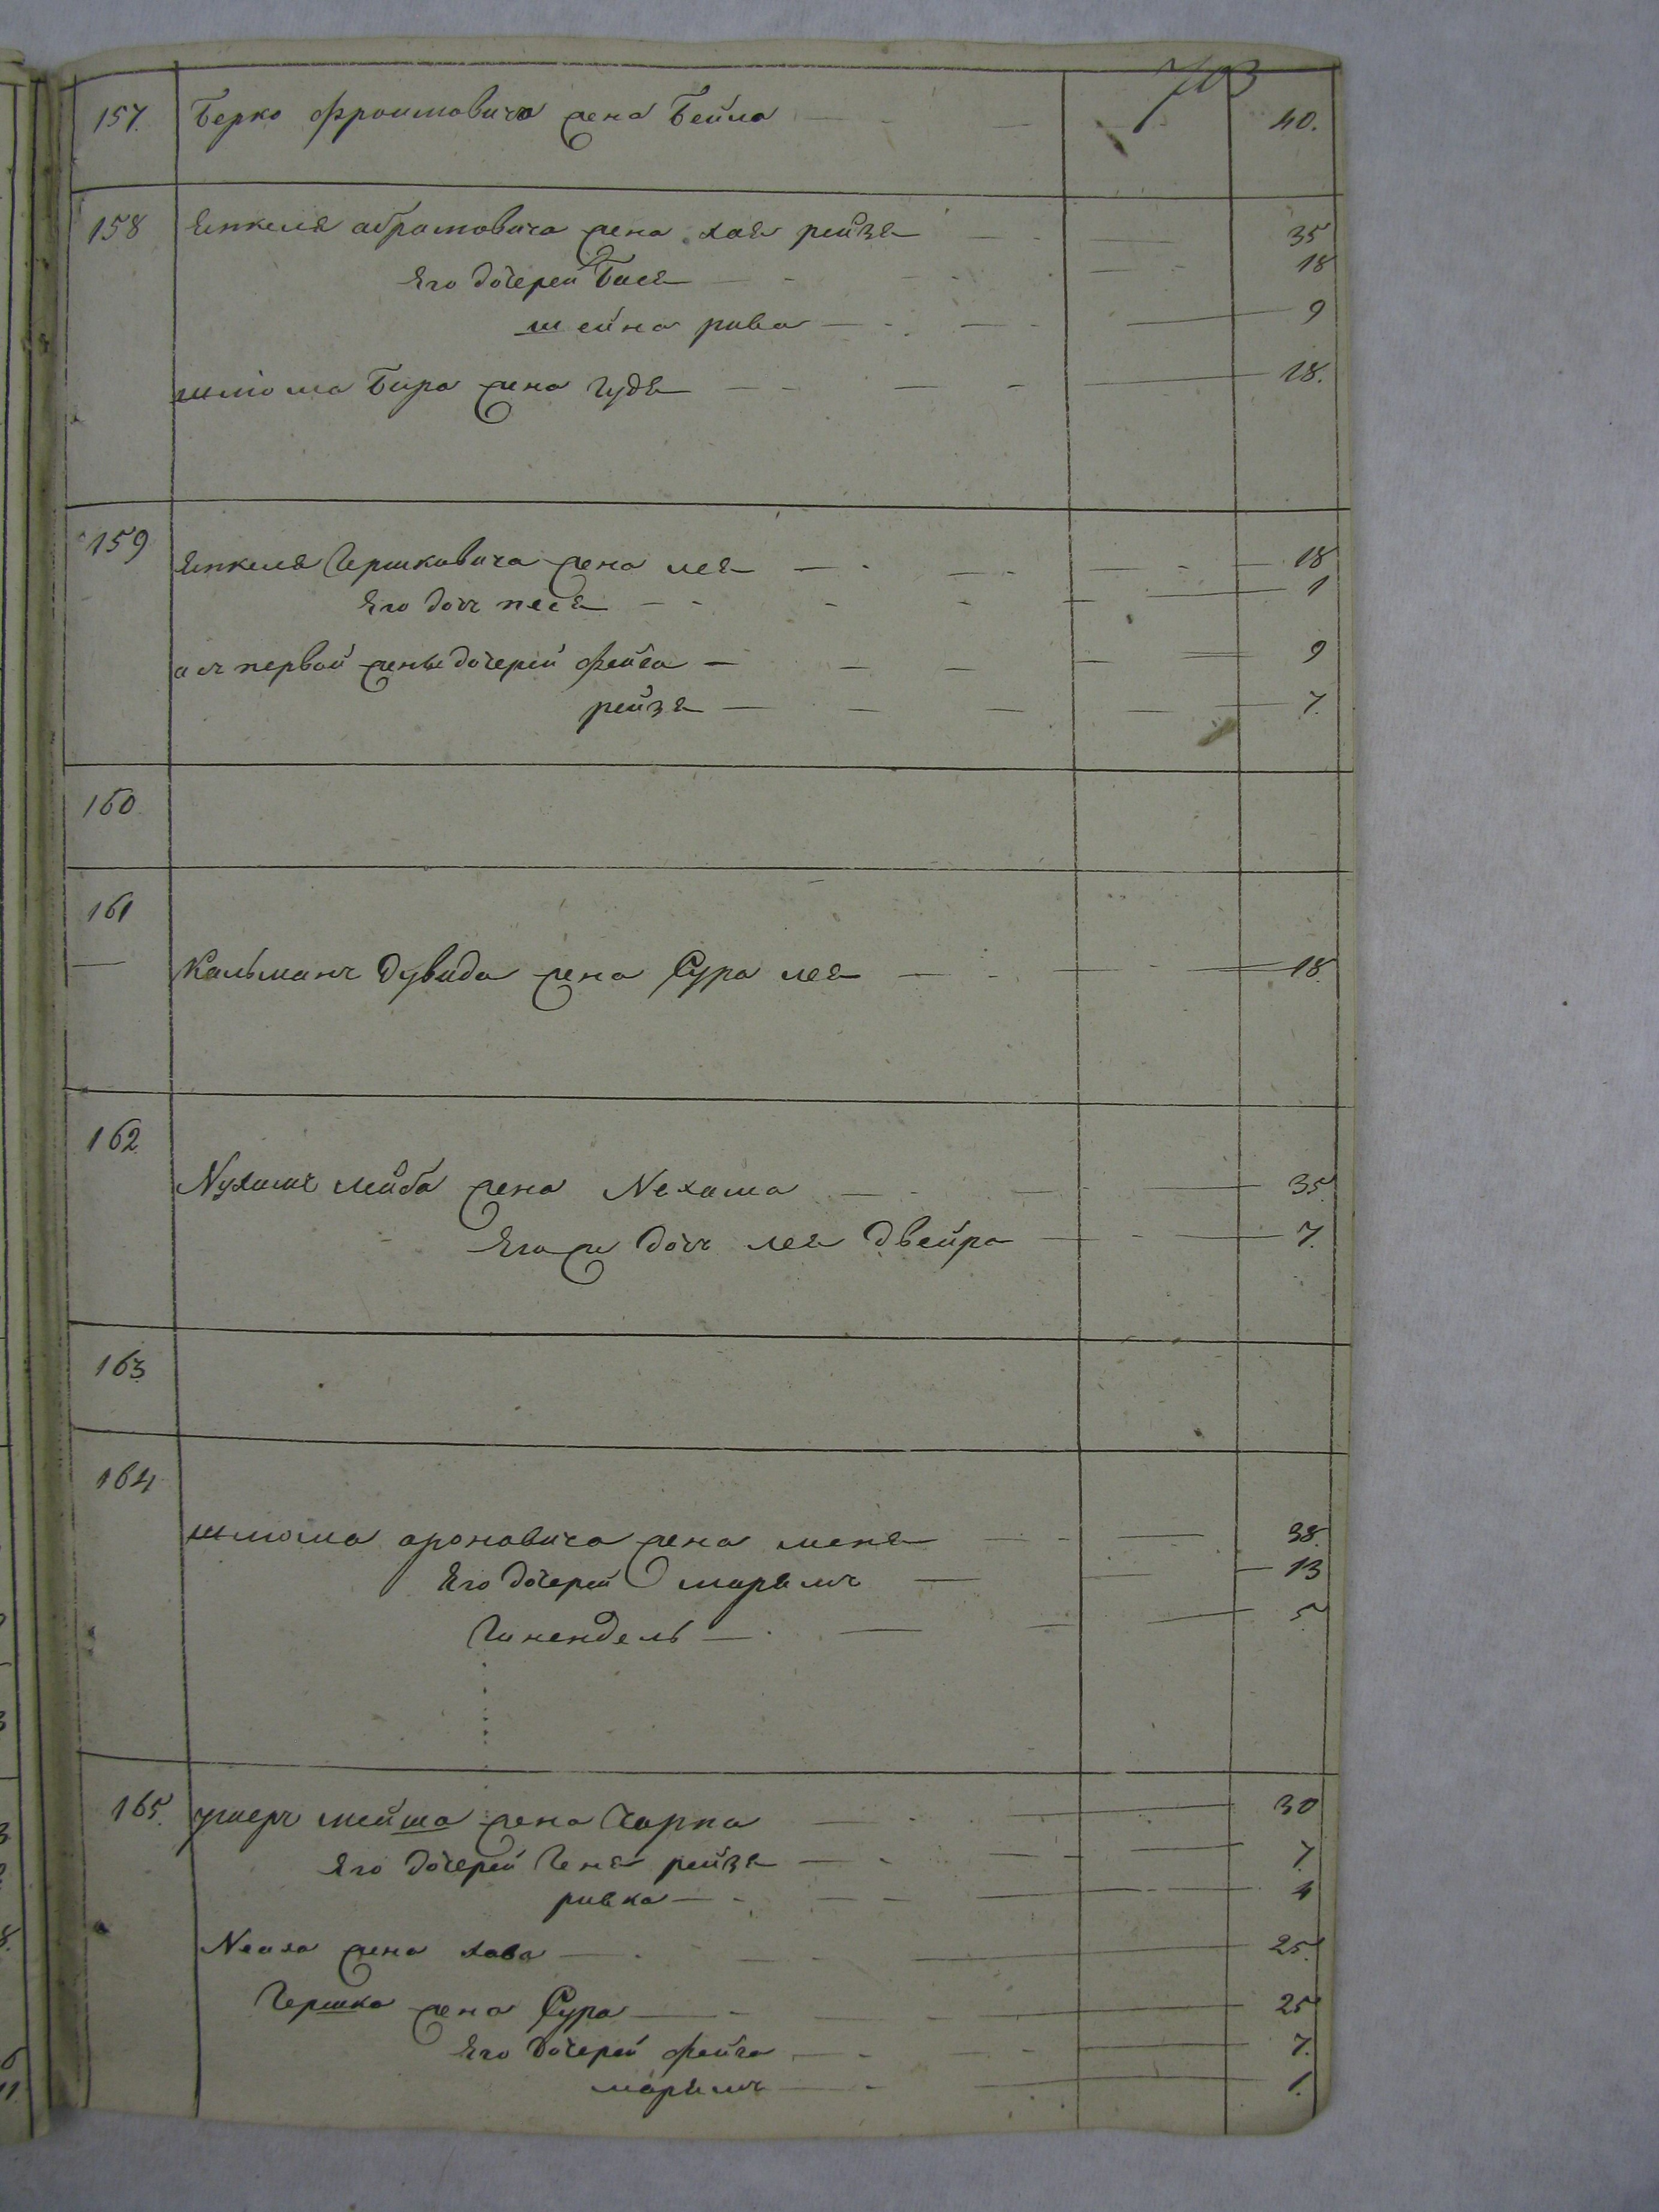 703
157. Берко Фроимовича жена Бейла 40.
158 Янкеля абрамовича жена хая рейзя 35
Его дочерей Бася 18
шейна рива 9
шлиома Бера жена гудя 18.
159 Янкеля Гершковича жена лея 18
Его дочь песя 1
а съ первой жены дочерей Фейга 9
рейзя 7.
160
161
Кальманъ Дувида жена Сура лея 18.
162
Nухимъ лейба жена Nехама 35.
Его же дочь лея двейра 7.
163
164
шлиома ароновича жена меня 38.
Его дочерей марямъ 13
Гинендель 5
165. ушеръ мейша жена Чарна 30
Его дочерей Геня рейзя 7.
ривка 4
жена хава 25.
Гершка жена Сура 25
Его дочерей Фейга 7.
марямъ 1.